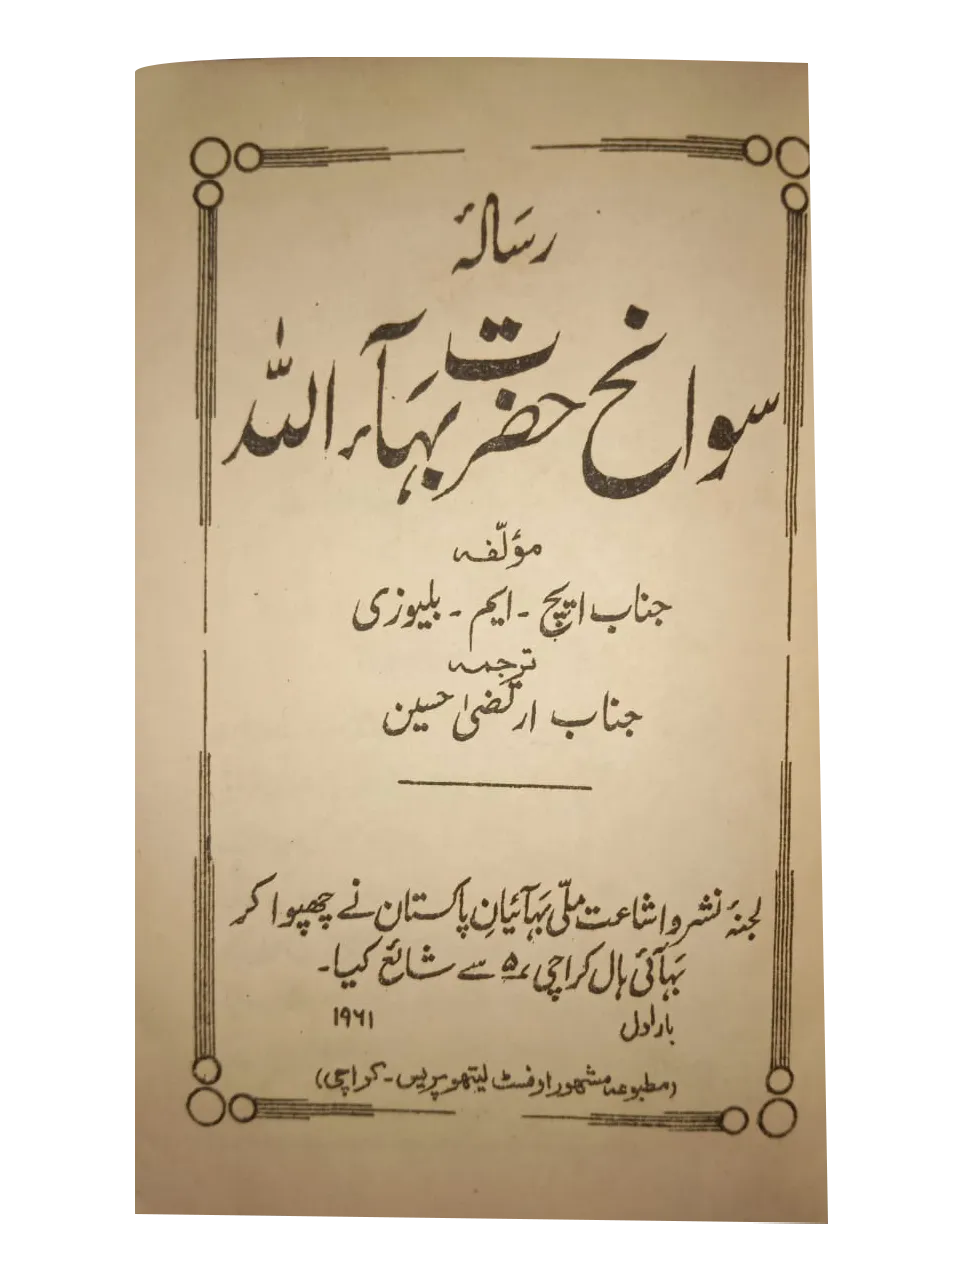 رسالۂ
سوانح حضرت بہآء اللہ
مؤلّفہ
جناب ایچ - ایم - بلیوزی
ترجمہ
جناب ارتضیٰ حسین
لجنۂ نشر و اشاعت ملّی بہآئیانِ پاکستان نے چھپوا کر
بہآئی ہال کراچی ۵ سے شائع کیا۔
بار اول
۱۹۶۱
(مطبوعہ مشہور اوفسٹ لیتھو پریس - کراچی)